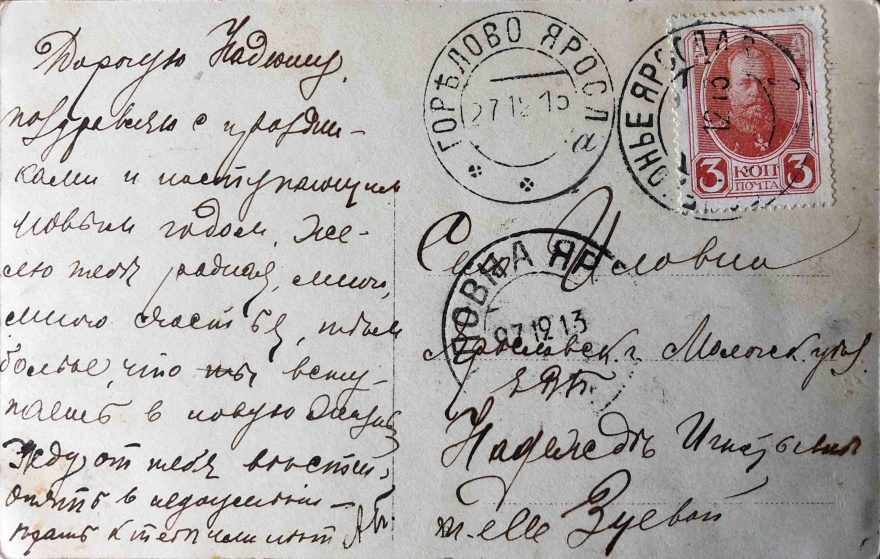 Дорогую Надюшу,
поздравляю с праздни-
ками и наступающим
новым годом. Же-
лаю тебѣ родная, много,
много счастья, тѣм
болѣе, что ты всту-
паешь в новую жизнь
Жду от тебя вѣстей,
опять в недоумѣнiи –
ѣдешь к теб или нѣт А.Б.
ГОРѢЛОВО ЯРОСЛ.
27 12 13
а
ОНЬЕ ЯРОСЛАВ
12 13
3 КОП 3
ПОЧТА
Село Иловна
ИЛОВНА ЯР
27 12 13
Ярославск. г. Моложск. у.
Надеждѣ Игнатьевнѣ
m-elle Зуевой